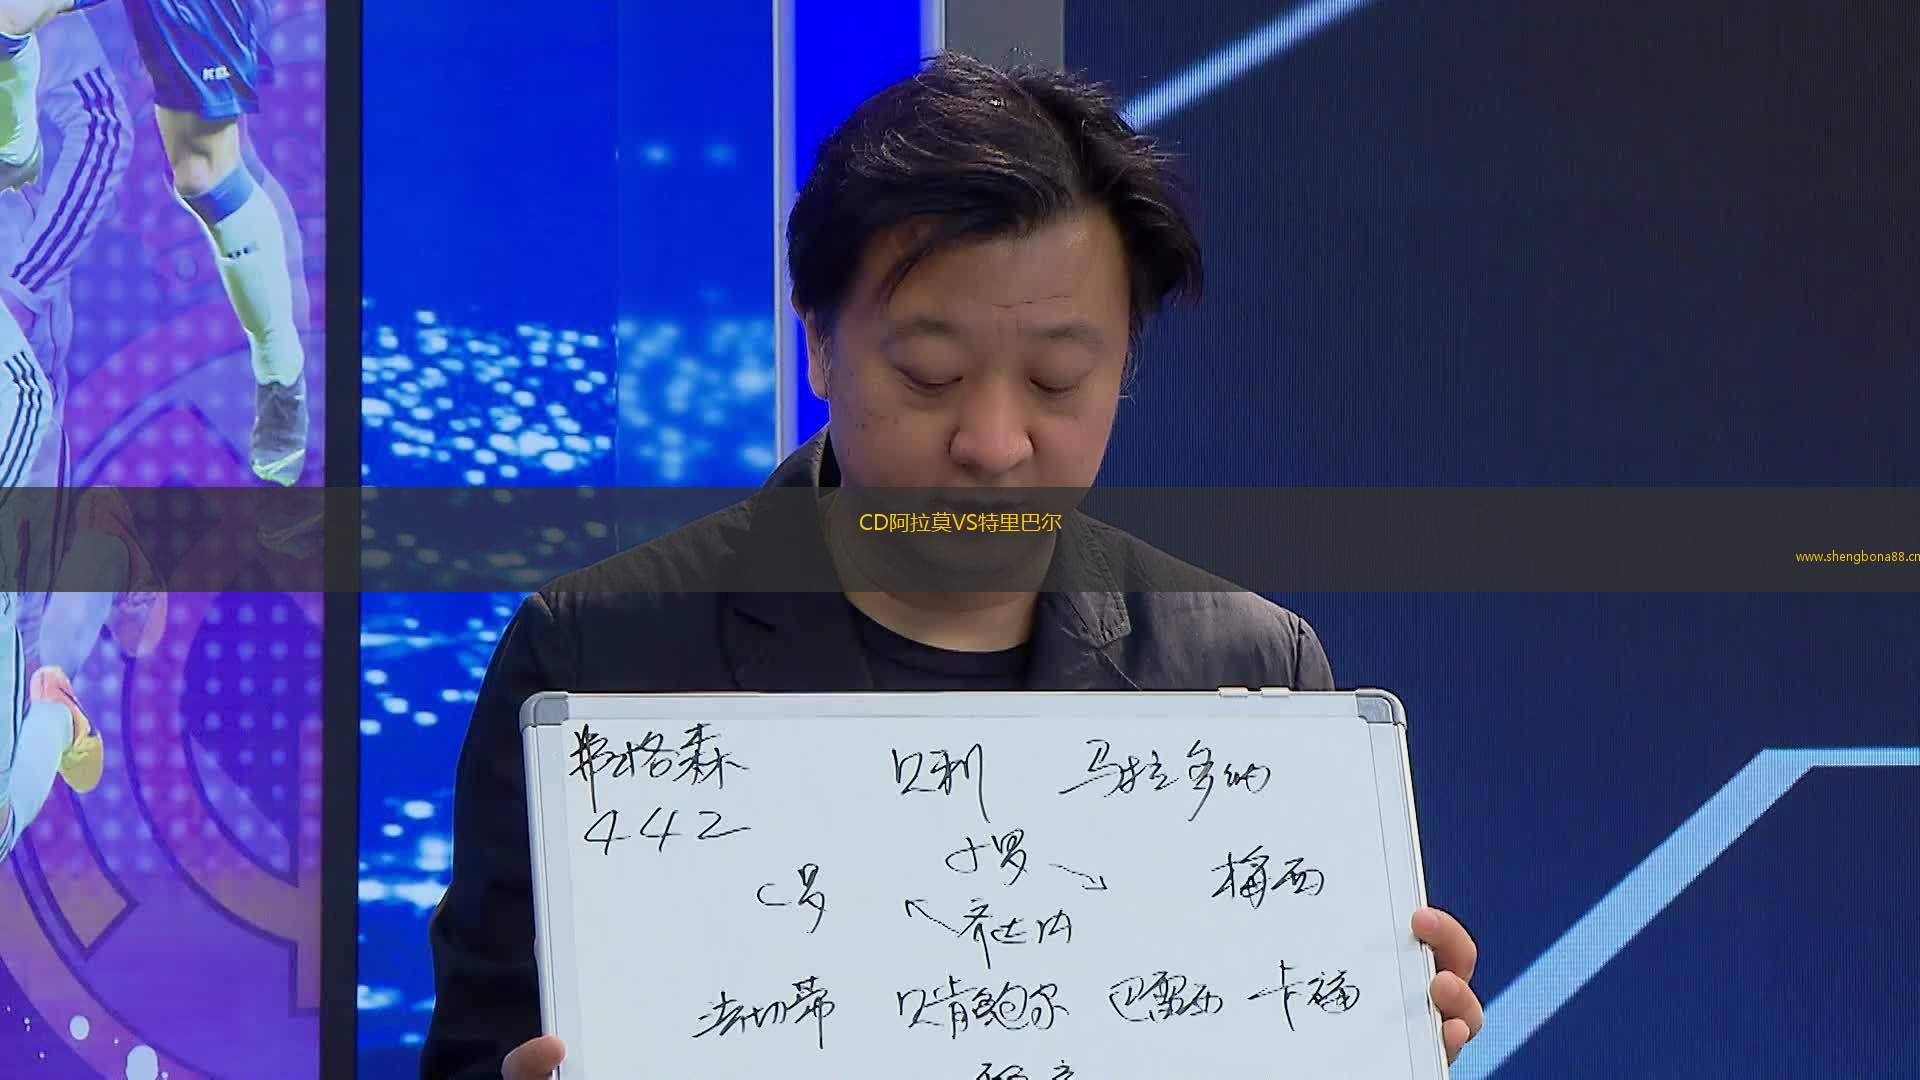 CD阿拉莫VS特里巴尔
www.shengbona88.cn
弗格森 贝利 马拉多纳
442 小罗
C罗 梅西
齐达内
法切蒂 贝肯鲍尔 巴雷西 卡福